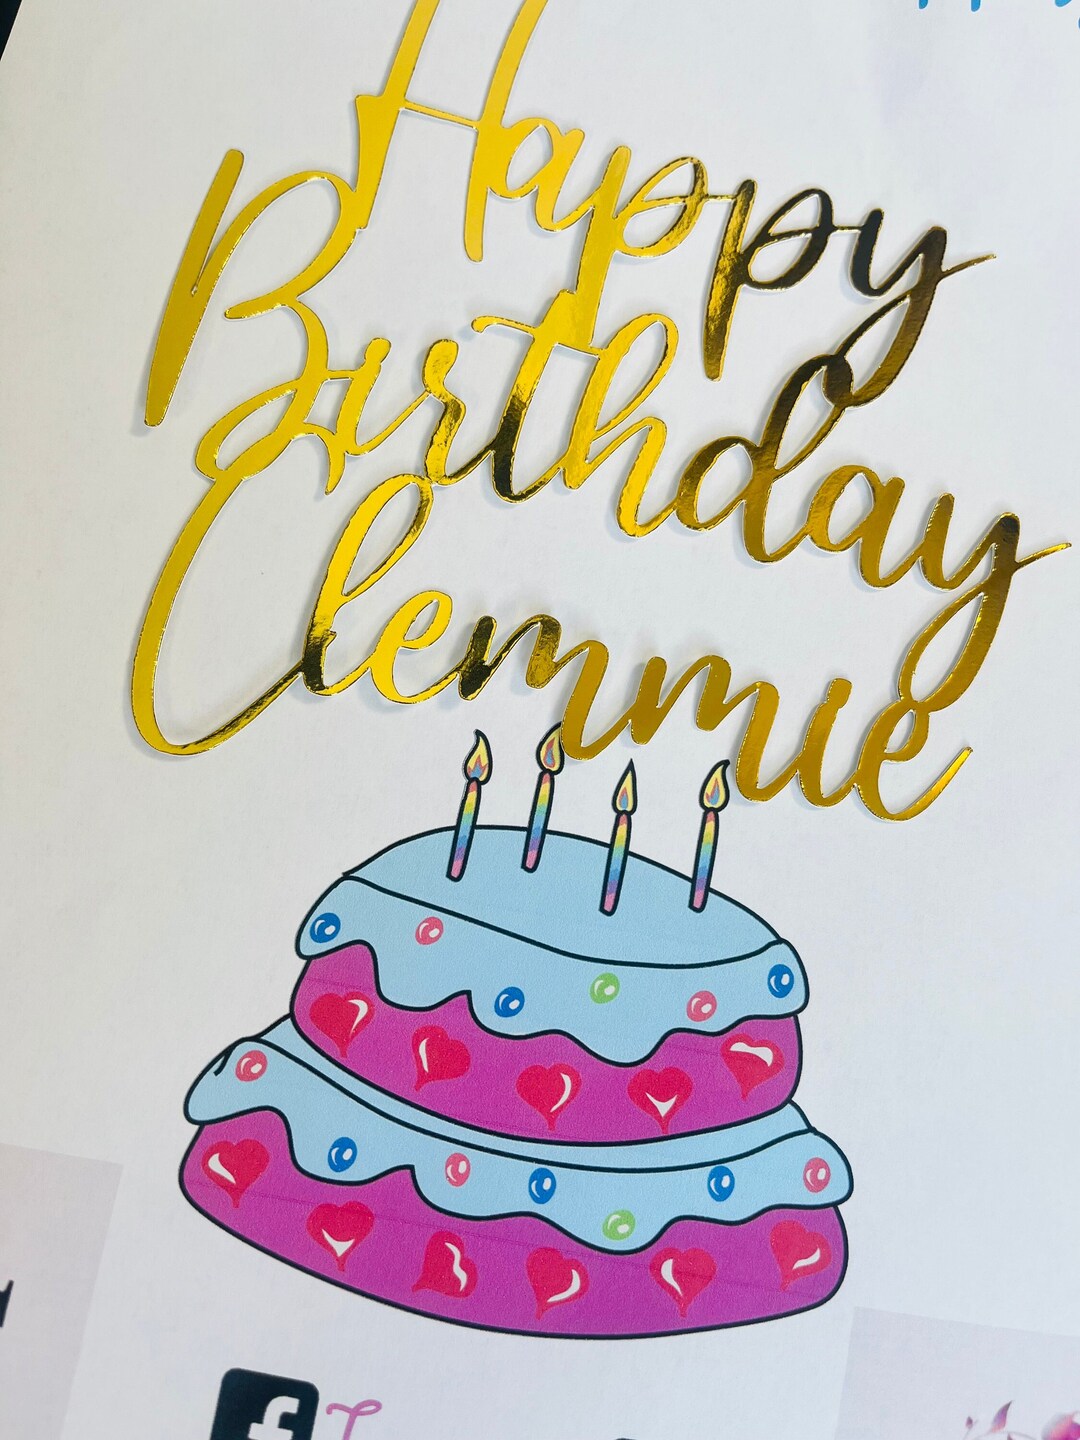 Happy
Birthday
Clemmie